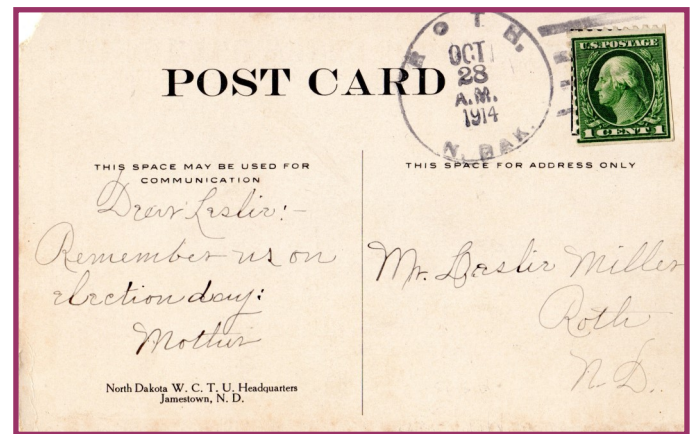 POST CARD
ROTH,
OCT
28
A.M.
1914
N. DAK.
U.S. POSTAGE
1 CENT 1
THIS SPACE MAY BE USED FOR
COMMUNICATION
Dear Leslie:-
Remember us on
election day:
Mother
North Dakota W. C. T. U. Headquarters
Jamestown, N. D.
THIS SPACE FOR ADDRESS ONLY
Mr. Leslie Miller
Roth
N. D.